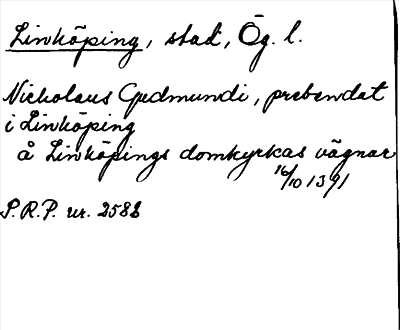 Linköping, stad, Ög. l.
Nicholaus Gudmundi, prebendat
i Linköping
å Linköpings domkyrkas vägnar
16/10 1391
S.R.P. nr. 2582